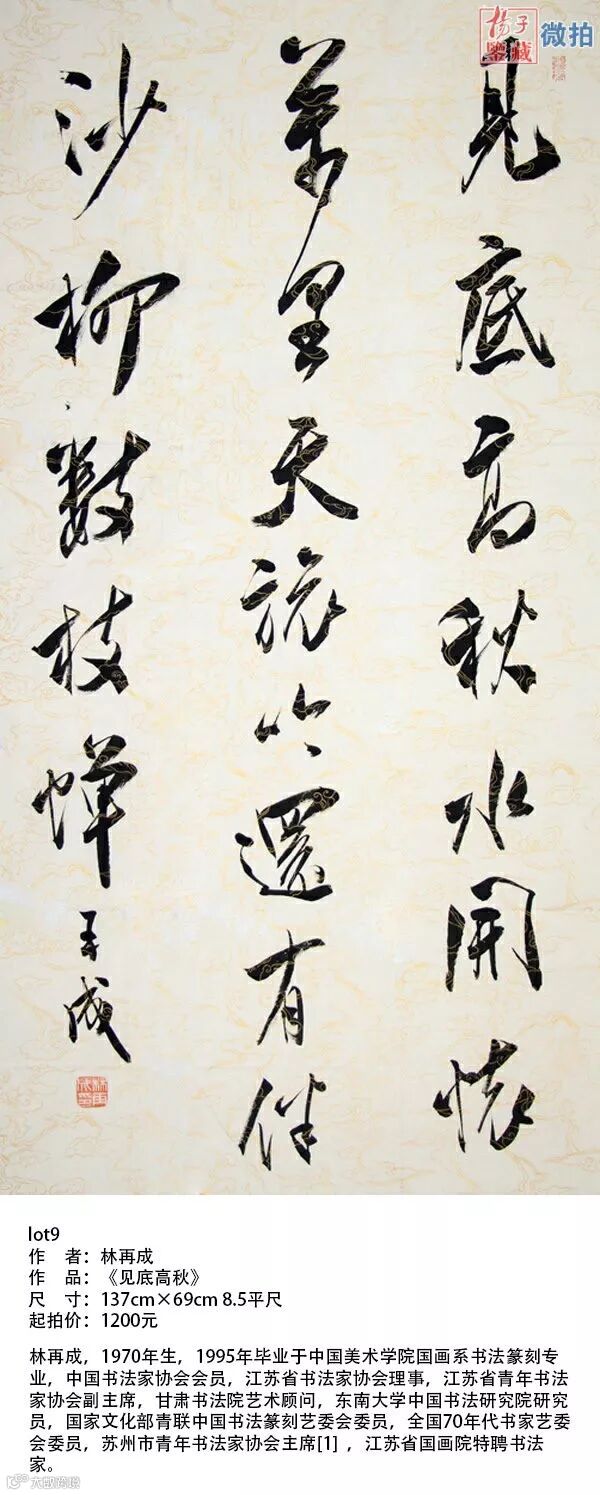 揚子
鑒藏
微拍
見底高秋水開懷
萬里天旅吟還有伴
沙柳數枝蟬 再成
林再成印
lot9
作 者：林再成
作 品：《见底高秋》
尺 寸：137cm×69cm 8.5平尺
起拍价：1200元
林再成，1970年生，1995年毕业于中国美术学院国画系书法篆刻专
业，中国书法家协会会员，江苏省书法家协会理事，江苏省青年书法
家协会副主席，甘肃书法院艺术顾问，东南大学中国书法研究院研究
员，国家文化部青联中国书法篆刻艺委会委员，全国70年代书家艺委
会委员，苏州市青年书法家协会主席[1] ，江苏省国画院特聘书法
家。
大数跨境